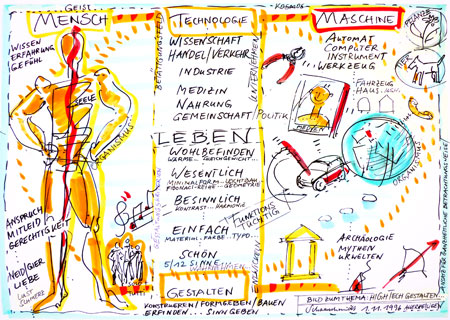 GEIST...
MENSCH
WISSEN
ERFAHRUNG
GEFÜHL
SEELE
ORGANISMUS
ANSPRUCH
MITLEID
GERECHTIGKEIT
NEID/GIER
LIEBE
LUST
SCHMERZ
TECHNOLOGIE
BETÄTIGUNGSFELD
WISSENSCHAFT
HANDEL/VERKEHR
INDUSTRIE
MEDIZIN
NAHRUNG
GEMEINSCHAFT/POLITIK
UNTERNEHMEN
LEBEN
WOHLBEFINDEN
WÄRME...GLEICHGEWICHT...
WESENTLICH
MINIMALFORM-LEICHTBAU
FIBONACI-REIHE...GEOMETRIE
BESINNLICH
KONTRAST...HARMONIE
FUNKTIONS
TÜCHTIG
EINFACH
MATERIAL.FARBE.TYPO...
SCHÖN
5/12 SINNE
WAHRNEHMEN
ENTWICKELN
GESTALTEN
KONSTRUIEREN/FORMGEBEN/BAUEN
ERFINDEN...SINN GEBEN...
KOSMOS
MASCHINE
AUTOMAT
COMPUTER
INSTRUMENT
WERKZEUG
FAHRZEUG
HAUS
PFLANZE
TIER
MEDIEN
ORGANISMUS
ARCHÄOLOGIE
MYTHEN
URWELTEN
BILD ZUM THEMA: HIGH TECH GESTALTEN...
1.11.1996